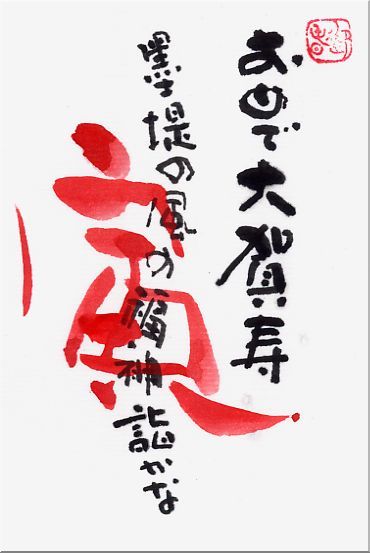 おめで大賀寿
墨堤の風の福神詣かな